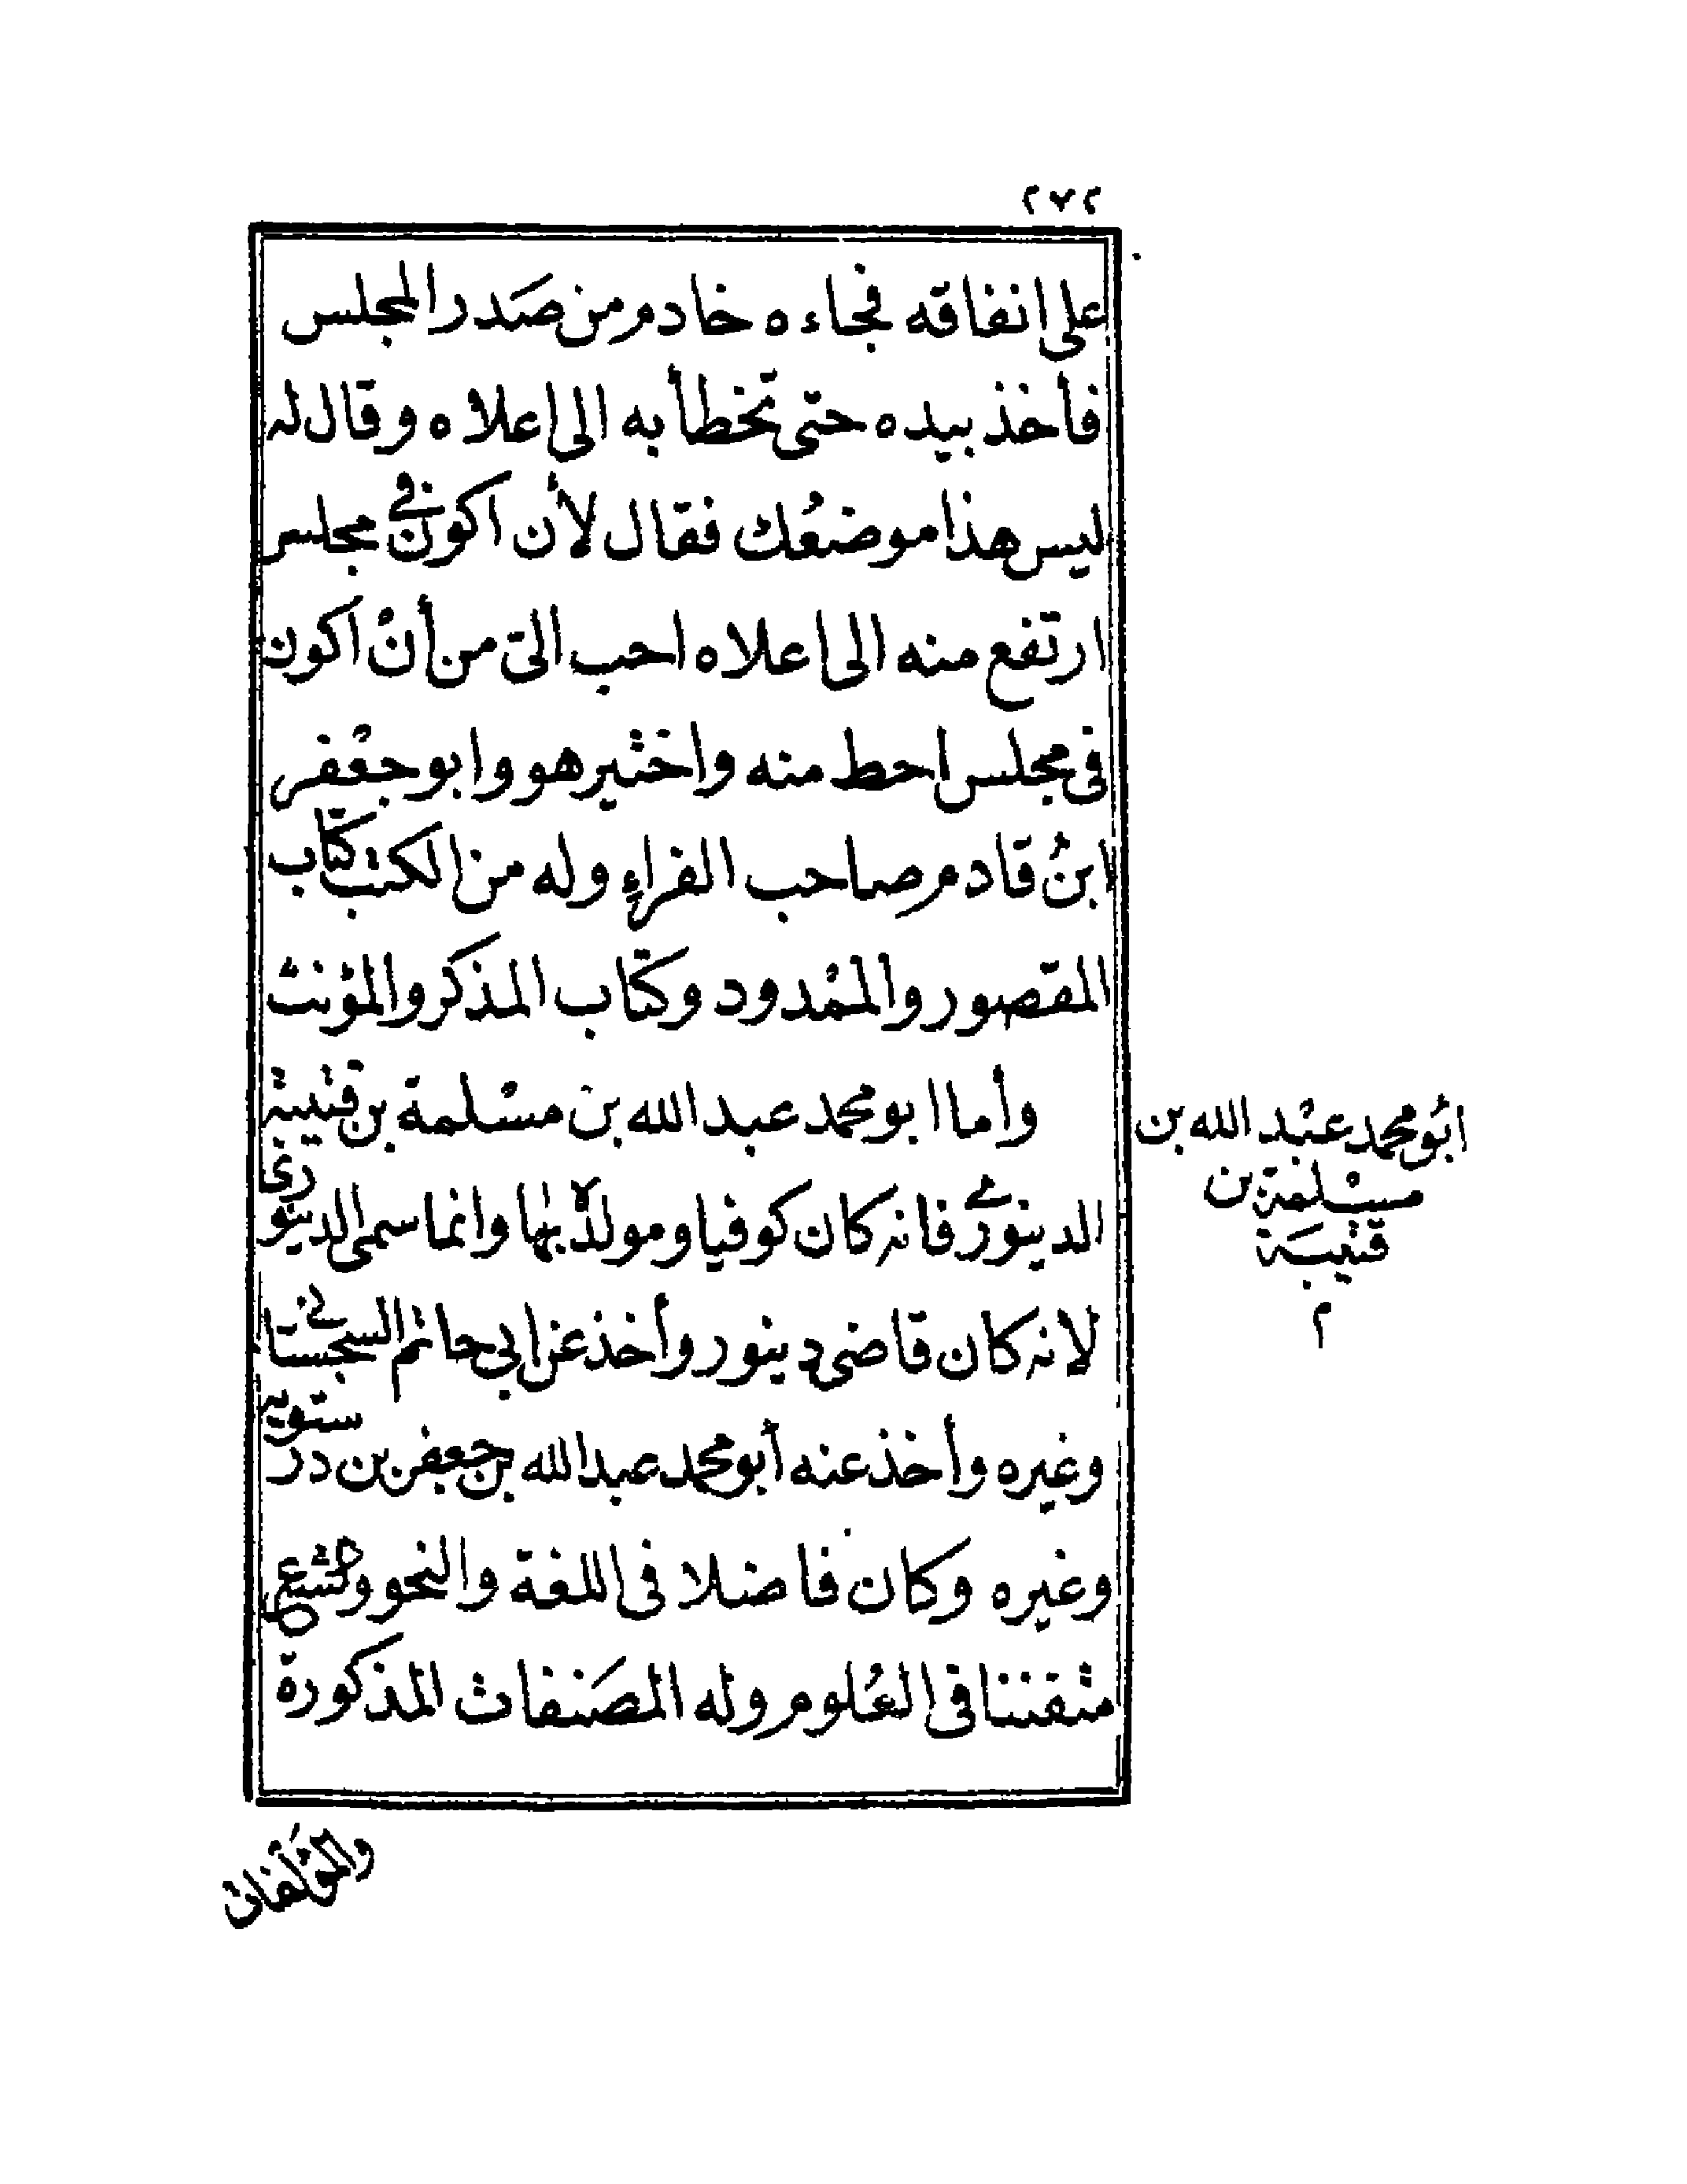 ٢٧٢
على انفاقه فجاءه خادم من صَدر المجلس
فأخذ بيده حتى تخطأ به الى اعلاه وقال له
ليس هذا موضعُك فقال لأن اكون فى مجلس
ارتفع منه الى اعلاه احب الىّ من أنْ اكون
فى مجلس احط منه واختير هو وابو جعْفر
ابنُ قادم صاحب الفراءِ وله من الكتب كتاب
المقصور والممْدود وكتاب المذكر والمؤنث
وأما ابو محمد عبد الله بن مسْلمة بن قتيبة
الدينورى فانه كان كوفيا ومولدهُ بها وانما سمى الدينورى
لانه كان قاضى دينور وأخذ عن ابى حاتم السجستانى
وغيره وأخذ عنه أبو محمد عبد الله بن جعفر بن درستويه
وغيره وكان فاضلا فى اللغة والنحو والشعر
متفننا فى العُلوم وله المصَنفات المذكورة
والمؤلفات
ابُو محمد عبْد الله بن
مسْلمة بن
قتيبَة
م